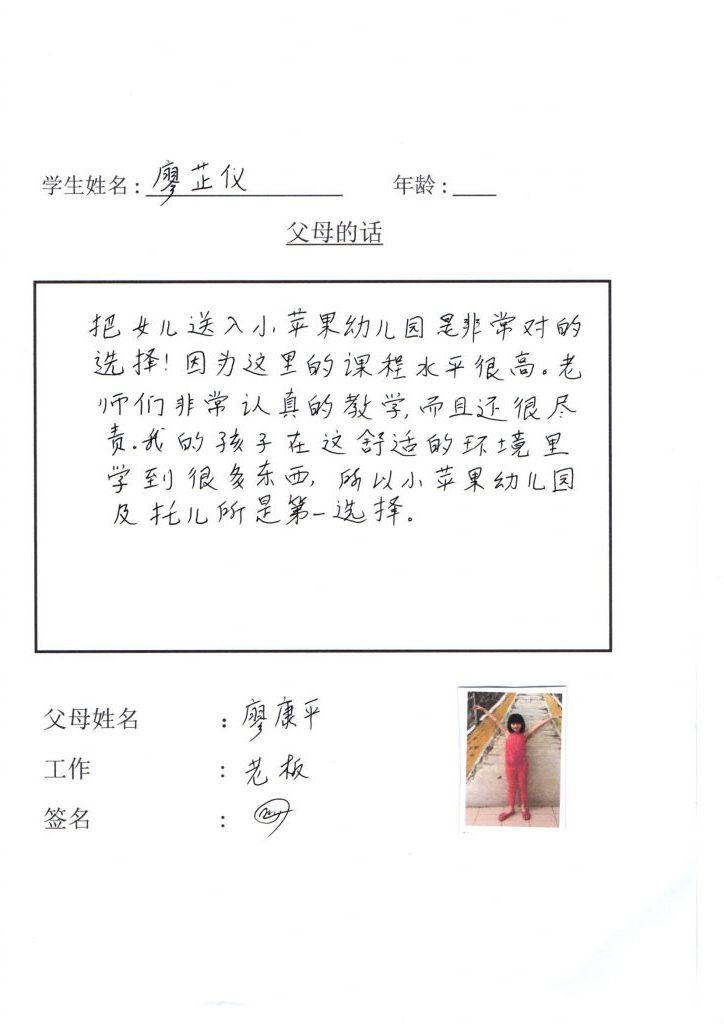 学生姓名：廖芷仪 年龄：
父母的话
把女儿送入小苹果幼儿园是非常对的
选择！因为这里的课程水平很高。老
师们非常认真的教学，而且还很尽
责.我的孩子在这舒适的环境里
学到很多东西，所以小苹果幼儿园
及托儿所是第一选择。
父母姓名：廖康平
工作：老板
签名：